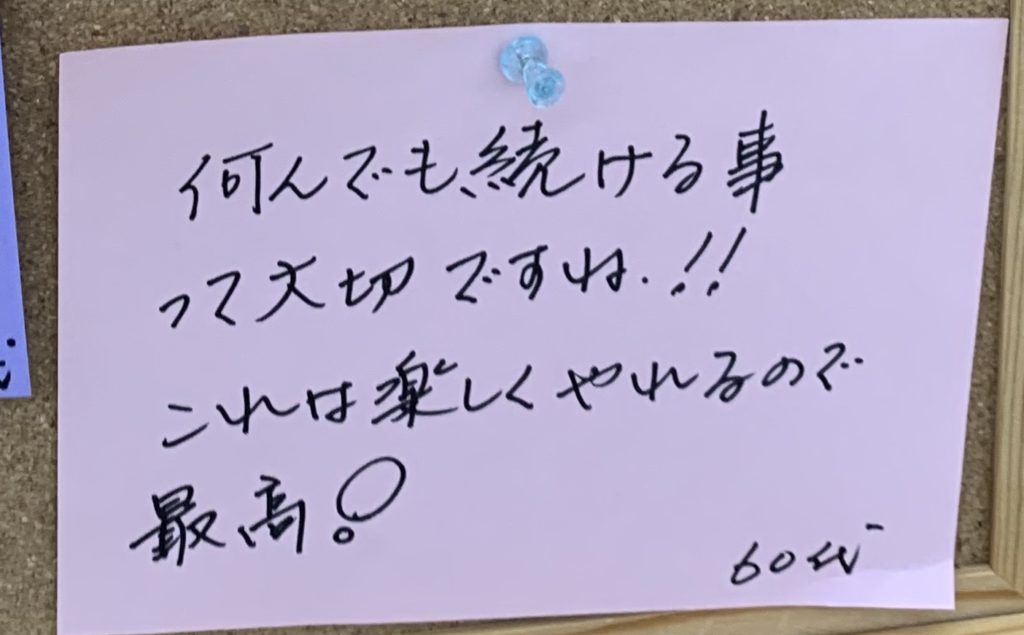 何んでも、続ける事
って大切ですね.!!
これは楽しくやれるので
最高!
60代